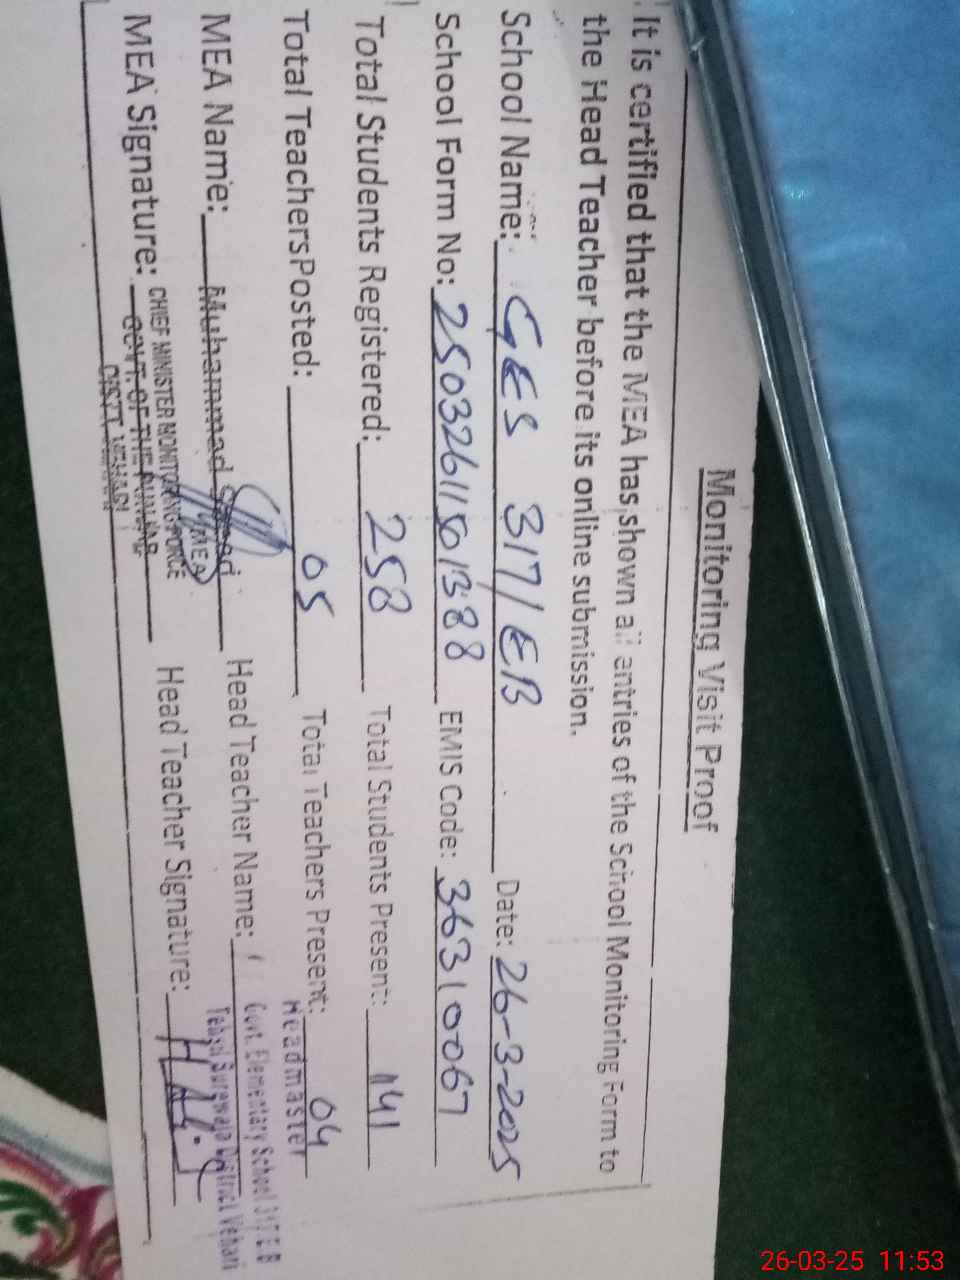 Monitoring Visit Proof
It is certified that the MEA has shown all entries of the School Monitoring Form to
the Head Teacher before its online submission.
School Name: GES 317/EB Date: 26-3-2025
School Form No: EMIS Code: 36310067
Total Students Registered: 258 Total Students Present: 141
Total Teachers Posted: 05 Total Teachers Present: 04
MEA Name: Muhammad Head Teacher Name:
Headmaster
Govt. Elementary School 317 E.B
Tehsil Burewala District Vehari
MEA Signature: Head Teacher Signature:
(MEA)
CHIEF MINISTER MONITORING FORCE
GOVT. OF THE PUNJAB
DISTT. VEHARI
26-03-25 11:53